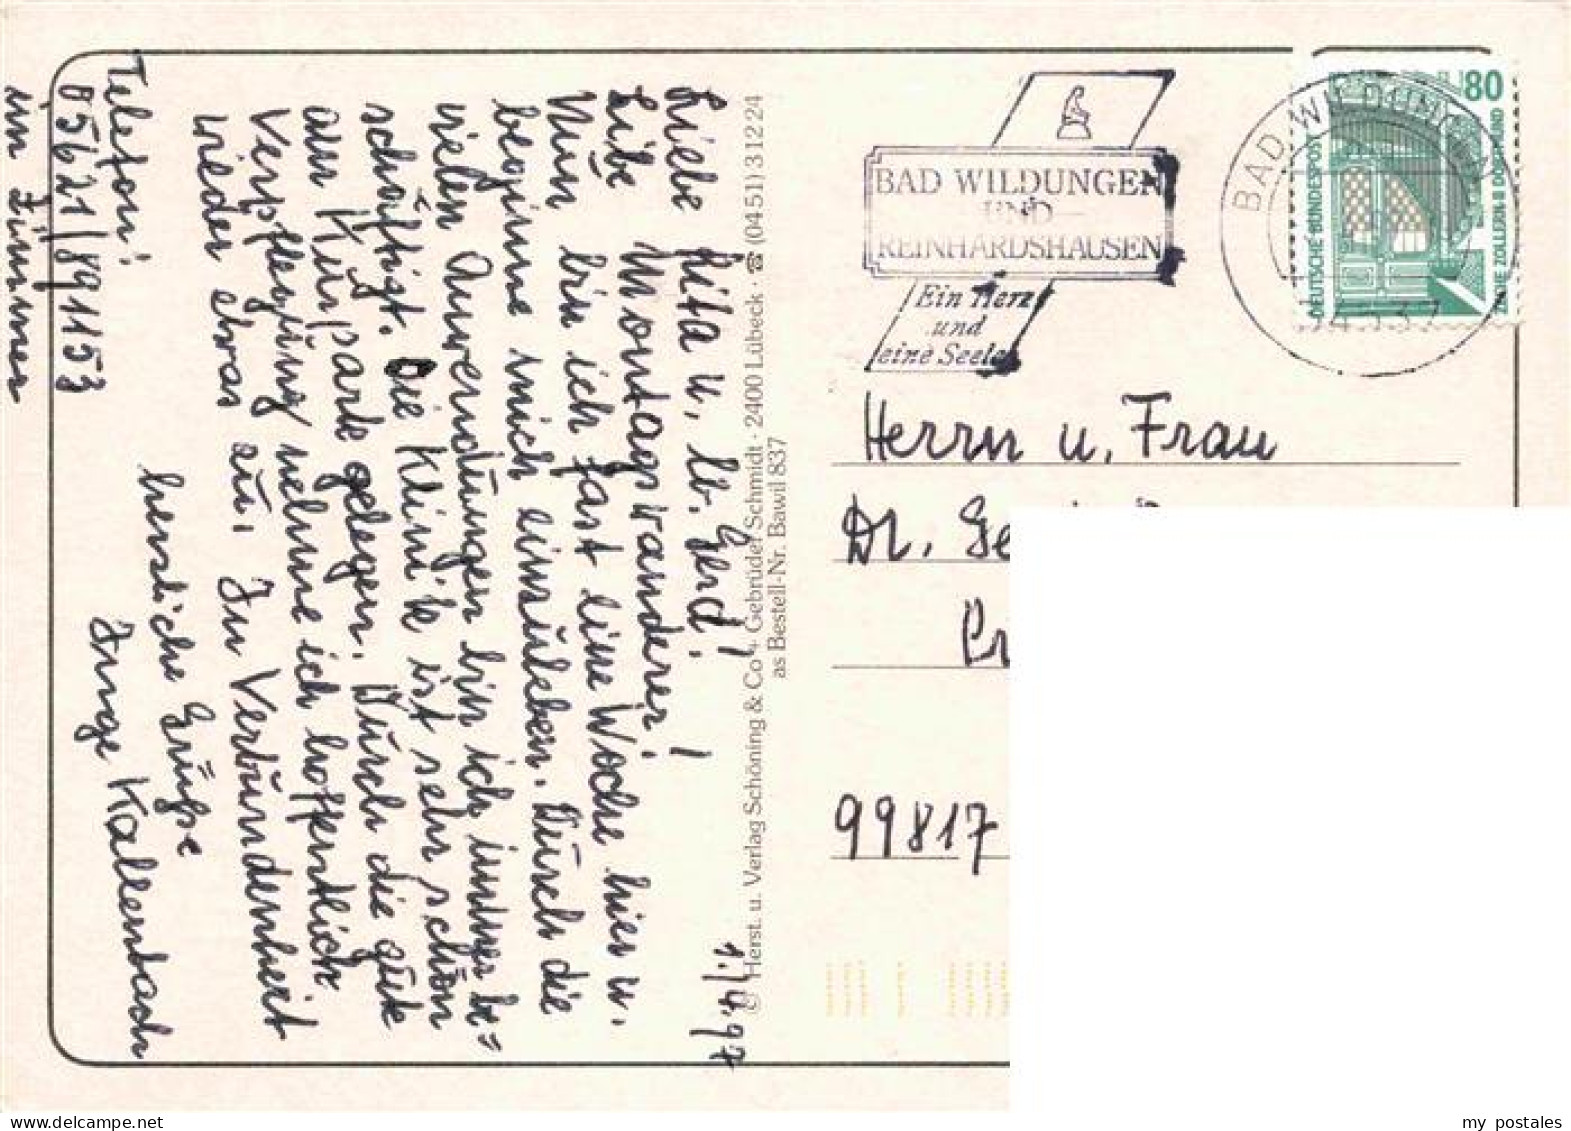 1./4.97
Liebe Rita u. lb. Gerd!
Liebe Montagswanderer!
Nun bin ich fast eine Woche hier u.
beginne mich einzuleben. Durch die
vielen Anwendungen bin ich immer be=
schäftigt. Die Klinik ist sehr schön
am Kurpark gelegen. Durch die gute
Verpflegung nehme ich hoffentlich
wieder etwas zu. In Verbundenheit
herzliche Grüße
Inge Kallenbach
Telefon:
05621/891153
im Zimmer
© Herst. u. Verlag Schöning & Co + Gebrüder Schmidt · 2400 Lübeck · ☎ (0451) 3 12 24
as Bestell-Nr. Bawil 837
BAD WILDUNGEN
UND
REINHARDSHAUSEN
Ein Herz
und
eine Seele
BAD WILDUNGEN
80
DEUTSCHE BUNDESPOST
ZECHE ZOLLERN II DORTMUND
34537
Herrn u. Frau
Dr. Ge
99817
my postales